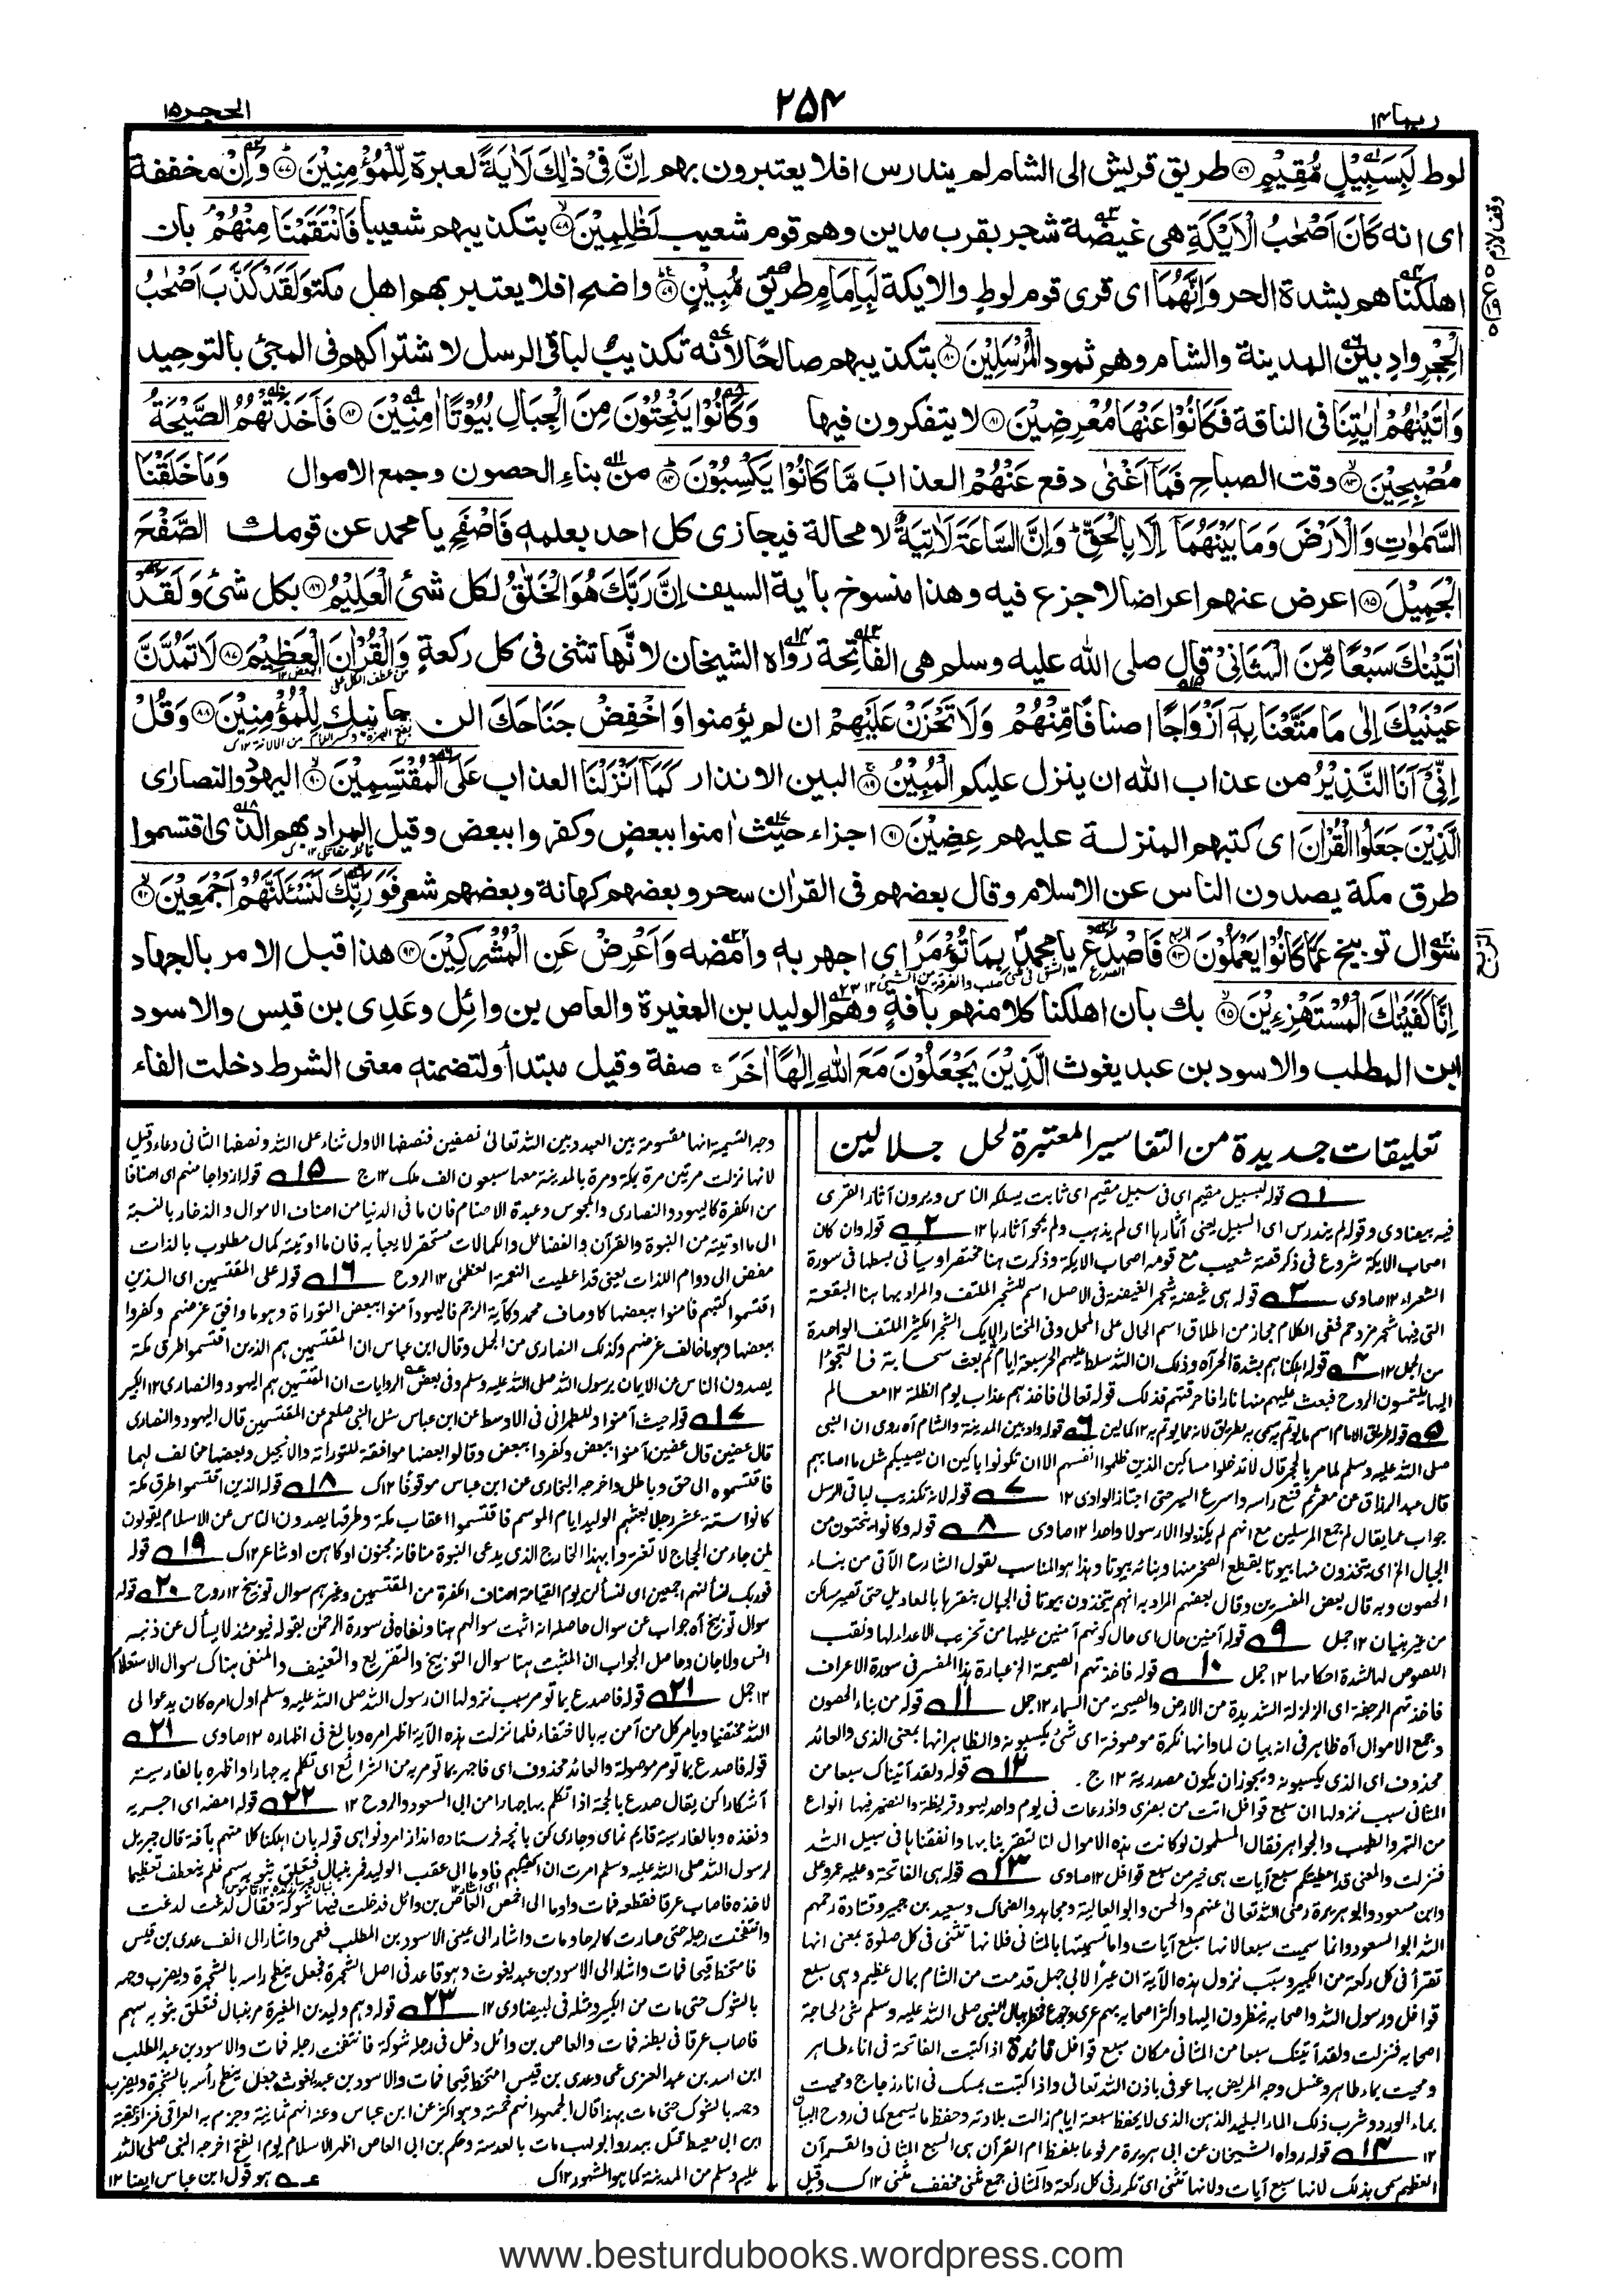 ربما ١٤
٢٥٤
الحجر ١٥
لوط لَبِسَبِيْلٍ مُّقِيْمٍ ۝٧٦ طريق قريش الى الشام لم يندرس افلا يعتبرون بهم اِنَّ فِيْ ذٰلِكَ لَاٰيَةً لعبرة لِّلْمُؤْمِنِيْنَ ۝٧٧ وَاِنْ مخففة
اى انه كَانَ اَصْحٰبُ الْاَيْكَةِ هى غيضة شجر بقرب مدين وهم قوم شعيب لَظٰلِمِيْنَ ۝٧٨ بتكذيبهم شعيبا فَانْتَقَمْنَا مِنْهُمْ بان
اهلكناهم بشدة الحر وَاِنَّهُمَا اى قرى قوم لوط والايكة لَبِاِمَامٍ طريق مُّبِيْنٍ ۝٧٩ واضح افلا يعتبر بهم اهل مكة وَلَقَدْ كَذَّبَ اَصْحٰبُ
الْحِجْرِ واد بين المدينة والشام وهم ثمود الْمُرْسَلِيْنَ ۝٨٠ بتكذيبهم صالحا لانه تكذيب لباقى الرسل لاشتراكهم فى المجئ بالتوحيد
وَاٰتَيْنٰهُمْ اٰيٰتِنَا فى الناقة فَكَانُوْا عَنْهَا مُعْرِضِيْنَ ۝٨١ لا يتفكرون فيها وَكَانُوْا يَنْحِتُوْنَ مِنَ الْجِبَالِ بُيُوْتًا اٰمِنِيْنَ ۝٨٢ فَاَخَذَتْهُمُ الصَّيْحَةُ
مُصْبِحِيْنَ ۝٨٣ وقت الصباح فَمَآ اَغْنٰى دفع عَنْهُمْ العذاب مَّا كَانُوْا يَكْسِبُوْنَ ۝٨٤ من بناء الحصون وجمع الاموال وَمَا خَلَقْنَا
السَّمٰوٰتِ وَالْاَرْضَ وَمَا بَيْنَهُمَآ اِلَّا بِالْحَقِّ وَاِنَّ السَّاعَةَ لَاٰتِيَةٌ لا محالة فيجازى كل احد بعلمه فَاصْفَحِ يا محمد عن قومك الصَّفْحَ
الْجَمِيْلَ ۝٨٥ اعرض عنهم اعراضا لا جزع فيه وهذا منسوخ بأية السيف اِنَّ رَبَّكَ هُوَ الْخَلّٰقُ لكل شئ الْعَلِيْمُ ۝٨٦ بكل شئ وَلَقَدْ
اٰتَيْنٰكَ سَبْعًا مِّنَ الْمَثَانِيْ قال صلى الله عليه وسلم هى الفاتحة رواه الشيخان لانها تثنى فى كل ركعة وَالْقُرْاٰنَ الْعَظِيْمَ ۝٨٧ لَا تَمُدَّنَّ
عَيْنَيْكَ اِلٰى مَا مَتَّعْنَا بِهٖٓ اَزْوَاجًا اصنافا مِّنْهُمْ وَلَا تَحْزَنْ عَلَيْهِمْ ان لم يؤمنوا وَاخْفِضْ جَنَاحَكَ الن جانبك لِلْمُؤْمِنِيْنَ ۝٨٨ وَقُلْ
اِنِّيْٓ اَنَا النَّذِيْرُ من عذاب الله ان ينزل عليكم الْمُبِيْنُ ۝٨٩ البين الانذار كَمَآ اَنْزَلْنَا العذاب عَلَى الْمُقْتَسِمِيْنَ ۝٩٠ اليهود والنصارى
الَّذِيْنَ جَعَلُوا الْقُرْاٰنَ اى كتبهم المنزلة عليهم عِضِيْنَ ۝٩١ اجزاء حيث امنوا ببعض وكفروا ببعض وقيل المراد بهم الذى اقتسموا
طرق مكة يصدون الناس عن الاسلام وقال بعضهم فى القران سحر وبعضهم كهانة وبعضهم شعر فَوَرَبِّكَ لَنَسْـَٔلَنَّهُمْ اَجْمَعِيْنَ ۝٩٢
سؤال توبيخ عَمَّا كَانُوْا يَعْمَلُوْنَ ۝٩٣ فَاصْدَعْ يا محمد بِمَا تُؤْمَرُ اى اجهر به وامضه وَاَعْرِضْ عَنِ الْمُشْرِكِيْنَ ۝٩٤ هذا قبل الامر بالجهاد
اِنَّا كَفَيْنٰكَ الْمُسْتَهْزِءِيْنَ ۝٩٥ بك بان اهلكنا كلا منهم بأفة وهم الوليد بن المغيرة والعاص بن وائل وعدى بن قيس والاسود
ابن المطلب والاسود بن عبد يغوث الَّذِيْنَ يَجْعَلُوْنَ مَعَ اللّٰهِ اِلٰهًا اٰخَرَ صفة وقيل مبتدأ ولتضمنه معنى الشرط دخلت الفاء
وقف لازم
الربع
تعليقات جديدة من التفاسير المعتبرة لحل جلالين
١ قوله لبسبيل مقيم اى فى سبيل مقيم اى ثابت يسلكه الناس ويرون آثار القرى
فيه بيضاوى وقوله لم يندرس اى السبيل يعنى آثارها اى لم يذهب ولم يمح آثارها ١٢ ٢ قوله وان كان
اصحاب الايكة شروع فى ذكر قصة شعيب مع قومه اصحاب الايكة وذكرت هنا مختصرا وسيأتى بسطها فى سورة
الشعراء ١٢ صاوى ٣ قوله هى غيضة شجر الغيضة فى الاصل اسم للشجر الملتف والمراد بها هنا البقعة
التى فيها شجر مزدحم ففى الكلام مجاز من اطلاق اسم الحال على المحل وفى المختار الايك الشجر الكثير الملتف الواحدة
من الجمل ١٢ ٤ قوله اهلكناهم بشدة الحر آه وذلك ان الله سلط عليهم الحر سبعة ايام ثم بعث سحابة فالتجؤا
اليها يلتمسون الروح فبعث عليهم منها نارا فاحرقتهم فذلك قوله تعالى فاخذهم عذاب يوم الظلة ١٢ معالم
صلى الله عليه وسلم لما مر بالحجر قال لا تدخلوا مساكن الذين ظلموا انفسهم الا ان تكونوا باكين ان يصيبكم مثل ما اصابهم
قال عبد الرزاق عن معمر ثم قنع راسه واسرع السير حتى اجتاز الوادى ١٢ ٧ قوله لانه تكذيب لباقى الرسل
جواب عما يقال لم جمع المرسلين مع انهم لم يكذبوا الا رسولا واحدا ١٢ صاوى ٨ قوله وكانوا ينحتون من
الجبال الخ اى يتخذون منها بيوتا بقطع الصخر منها وبنائه بيوتا وهذا هو المناسب لقول الشارح الآتى من بناء
الحصون وبه قال بعض المفسرين وقال بعضهم المراد به انهم يتخذون بيوتا فى الجبال بنقرها بالمعاويل حتى تصير مساكن
من غير بنيان ١٢ جمل ٩ قوله آمنين حال اى حال كونهم آمنين عليها من تخريب الاعداء لها ونقب
اللصوص لها لشدة احكامها ١٢ جمل ١٠ قوله فاخذتهم الصيحة الخ عبارة هذا المفسر فى سورة الاعراف
فاخذتهم الرجفة اى الزلزلة الشديدة من الارض والصيحة من السماء ١٢ جمل ١١ قوله من بناء الحصون
وجمع الاموال آه ظاهر فى انه بيان لما وانها نكرة موصوفة اى شئ يكسبونه والظاهر انها بمعنى الذى والعائد
محذوف اى الذى يكسبونه ويجوز ان يكون مصدرية ١٢ ج. ١٢ قوله ولقد آتيناك سبعا من
المثانى سبب نزولها ان سبع قوافل اتت من بصرى واذرعات فى يوم واحد ليهود قريظة والنضير فيها انواع
من البز والطيب والجواهر فقال المسلمون لو كانت هذه الاموال لنا لتقربنا بها وانفقناها فى سبيل الله
فنزلت والمعنى قد اعطيتكم سبع آيات هى خير من سبع قوافل ١٢ صاوى ١٣ قوله هى الفاتحة وعليه عمر وعلى
وابن مسعود وابو هريرة رضى الله تعالى عنهم والحسن وابو العالية ومجاهد والضحاك وسعيد بن جبير وقتادة رحمهم
الله ابو السعود وانما سميت سبعا لانها سبع آيات واما تسميتها بالمثانى فلانها تثنى فى كل صلوة بمعنى انها
تقرأ فى كل ركعة من الكبير وسبب نزول هذه الآية ان عيرا لابى جهل قدمت من الشام بمال عظيم وهى سبع
اصحابه فنزلت ولقد آتينك سبعا من المثانى مكان سبع قوافل فائدة اذا كتبت الفاتحة فى اناء طاهر
ومحيت بماء طاهر وغسل وجه المريض بها عوفى باذن الله تعالى واذا كتبت بمسك فى اناء زجاج ومحيت
بماء الورد وشرب ذلك الماء البليد الذهن الذى لا يحفظ سبعة ايام زالت بلادته وحفظ ما يسمع كما فى روح البيان
١٢ ١٤ قوله رواه الشيخان عن ابى هريرة مرفوعا بلفظ ام القرآن هى السبع المثانى والقرآن
العظيم سمى بذلك لانها سبع آيات ولانها تثنى اى تكرر فى كل ركعة والمثانى جمع مثنى مخفف مثنى ١٢ ك وقيل
وجه التسمية انها مقسومة بين العبد وبين الله تعالى نصفين فنصفها الاول ثناء على الله ونصفها الثانى دعاء وقيل
لانها نزلت مرتين مرة بمكة ومرة بالمدينة معها سبعون الف ملك ١٢ ج ١٥ قوله ازواجا منهم اى اصنافا
من الكفرة كاليهود والنصارى والمجوس وعبدة الاصنام فان ما فى الدنيا من اصناف الاموال والذخائر بالنسبة
الى ما اوتيته من النبوة والقرآن والفضائل والكمالات مستحقر لا يعبأ به فان ما اوتيته كمال مطلوب بالذات
مفض الى دوام اللذات يعنى قد اعطيت النعمة العظمى ١٢ الروح ١٦ قوله على المقتسمين اى الذين
اقتسموا كتبهم فامنوا ببعضها كاوصاف محمد وكآية الرجم فاليهود آمنوا ببعض التوراة وهو ما وافق غرضهم وكفروا
ببعضها وهو ما خالف غرضهم وكذلك النصارى من الجمل وقال ابن عباس ان المقتسمين هم الذين اقتسموا طرق مكة
يصدون الناس عن الايمان برسول الله صلى الله عليه وسلم وفى بعض الروايات ان المقتسمين هم اليهود والنصارى ١٢ الكبير
١٧ قوله حيث آمنوا وللطبرانى فى الاوسط عن ابن عباس سئل النبى صلعم عن المقتسمين قال اليهود والنصارى
قال عضين قال عضين آمنوا ببعض وكفروا ببعض وقالوا بعضها موافقة للتوراة والانجيل وبعضها مخالف لهما
فاقتسموه الى حق وباطل واخرجه البخارى عن ابن عباس موقوفا ١٢ ك ١٨ قوله الذين اقتسموا طرق مكة
كانوا ستة عشر رجلا بعثهم الوليد ايام الموسم فاقتسموا اعقاب مكة وطرقها يصدون الناس عن الاسلام يقولون
لمن جاء من الحجاج لا تغتروا بهذا الخارج الذى يدعى النبوة منا فانه مجنون او كاهن او شاعر ١٢ ك ١٩ قوله
فوربك لنسألنهم اجمعين اى لنسألن يوم القيامة اصناف الكفرة من المقتسمين وغيرهم سوال توبيخ ١٢ روح ٢٠ قوله
سوال توبيخ آه جواب عن سوال حاصله انه اثبت سوالهم هنا ونفاه فى سورة الرحمن بقوله فيومئذ لا يسأل عن ذنبه
انس ولا جان وحاصل الجواب ان المثبت هنا سوال التوبيخ والتقريع والتعنيف والمنفى هناك سوال الاستعلام
١٢ جمل ٢١ قوله فاصدع بما تؤمر سبب نزولها ان رسول الله صلى الله عليه وسلم اول امره كان يدعو الى
الله مختفيا ويأمر كل من آمن به بالاختفاء فلما نزلت هذه الآية اظهر امره وبالغ فى اظهاره ١٢ صاوى ٢١
قوله فاصدع بما تؤمر موصولة والعائد محذوف اى فاجهر بما تؤمر به من الشرائع اى تكلم به جهارا واظهره بالفارسية
آشكارا كن يقال صدع بالحجة اذا تكلم بها جهارا من ابى السعود والروح ١٢ ٢٢ قوله امضه اى اجر به
لرسول الله صلى الله عليه وسلم امرت ان اكفيكهم فاومأ الى عقب الوليد فمر بنبال فتعلق بثوبه سهم فلم ينعطف تعظيما
لاخذه فاصاب عرقا فقطعه فمات واومأ الى اخمص العاص بن وائل فدخلت فيها شوكة فقال لدغت لدغت
وانتفخت رجله حتى صارت كالرحا ومات واشار الى عينى الاسود بن المطلب فعمى واشار الى انف عدى بن قيس
فامتخط قيحا فمات واشار الى الاسود بن عبد يغوث وهو قاعد فى اصل الشجرة فجعل ينطح راسه بالشجرة ويضرب وجهه
بالشوك حتى مات من الكبير ومثله فى البيضاوى ١٢ ٢٣ قوله وهم وليد بن المغيرة مر بنبال فتعلق بثوبه سهم
فاصاب عرقا فى بطنه فمات والعاص بن وائل دخل فى رجله شوكة فانتفخت رجله فمات والاسود بن عبد المطلب
ابن اسد بن عبد العزى عمى وعدى بن قيس امتخط قيحا فمات والاسود بن عبد يغوث جعل ينطح رأسه بالشجرة ويضرب
وجهه بالشوك حتى مات بهذا قال الجمهور انهم خمسة وهو اكثر عن ابن عباس وعنه انهم ثمانية وجزم به العراقى فزاد عقبة
ابن ابى معيط قتل ببدر وابو لهب مات بالعدسة وحكم بن ابى العاص اظهر الاسلام يوم الفتح اخرجه النبى صلى الله
عليه وسلم من المدينة كما هو المشهور ١٢ ك هو قول ابن عباس ايضا ١٢
www.besturdubooks.wordpress.com